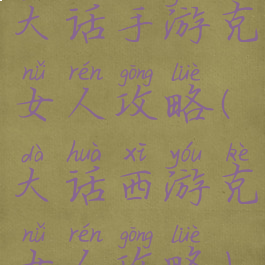 大话手游克
nǚ rén gōng lüè
女人攻略(
dà huà xī yóu kè
大话西游克
nǚ rén gōng lüè
女人攻略)